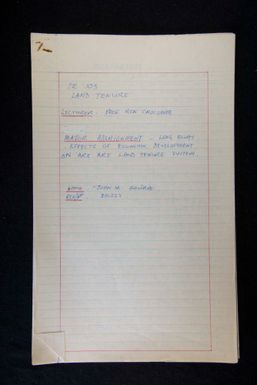 LAND TENURE
LECTURER: PROF RON CROCOMBE
MAJOR ASSIGNMENT - LONG ESSAY
EFFECTS OF ECONOMIC DEVELOPMENT
ON ARE ARE LAND TENURE SYSTEM.
NAME - JOHN